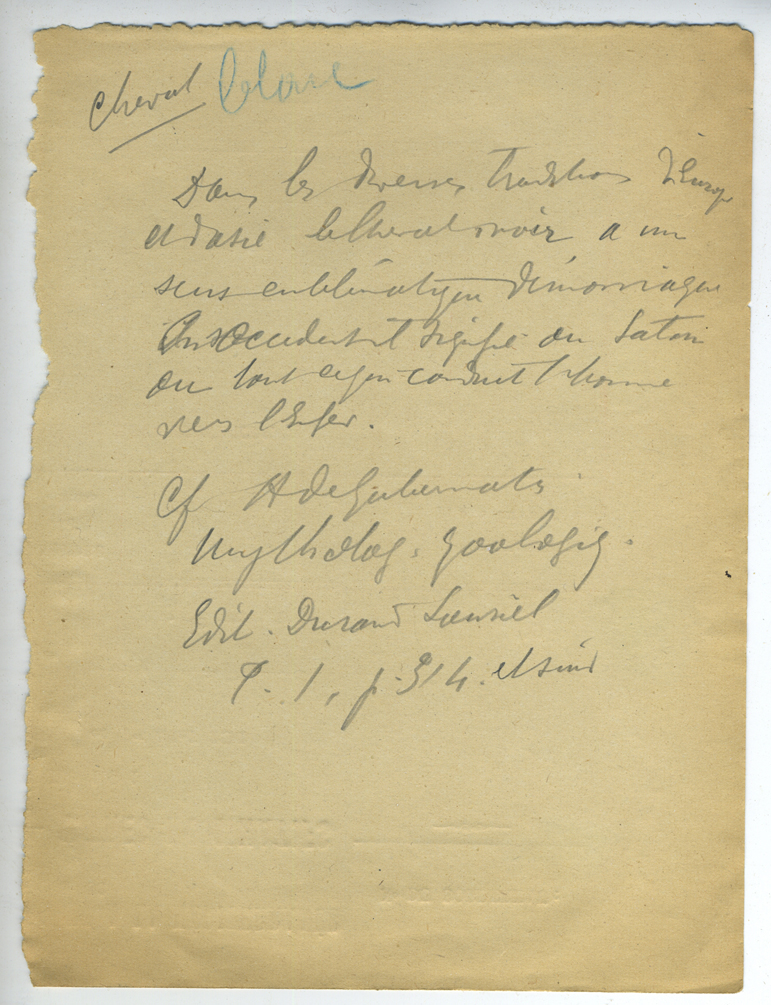 Cheval blanc
Dans les diverses traditions d'Europe
et d'Asie le cheval noir a un
sens emblématique démoniaque
En Occident il signifie ou Satan
ou tout ce qui conduit l'homme
vers l'Enfer.
Cf A de Gubernatis
Mytholog. zoologiq.
Edit. Durand Lauriel
T. 1, p. 314. et suiv